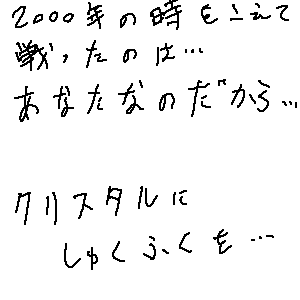 2000年の時をこえて
戦ったのは…
あなたなのだから…
クリスタルに
しゅくふくを…